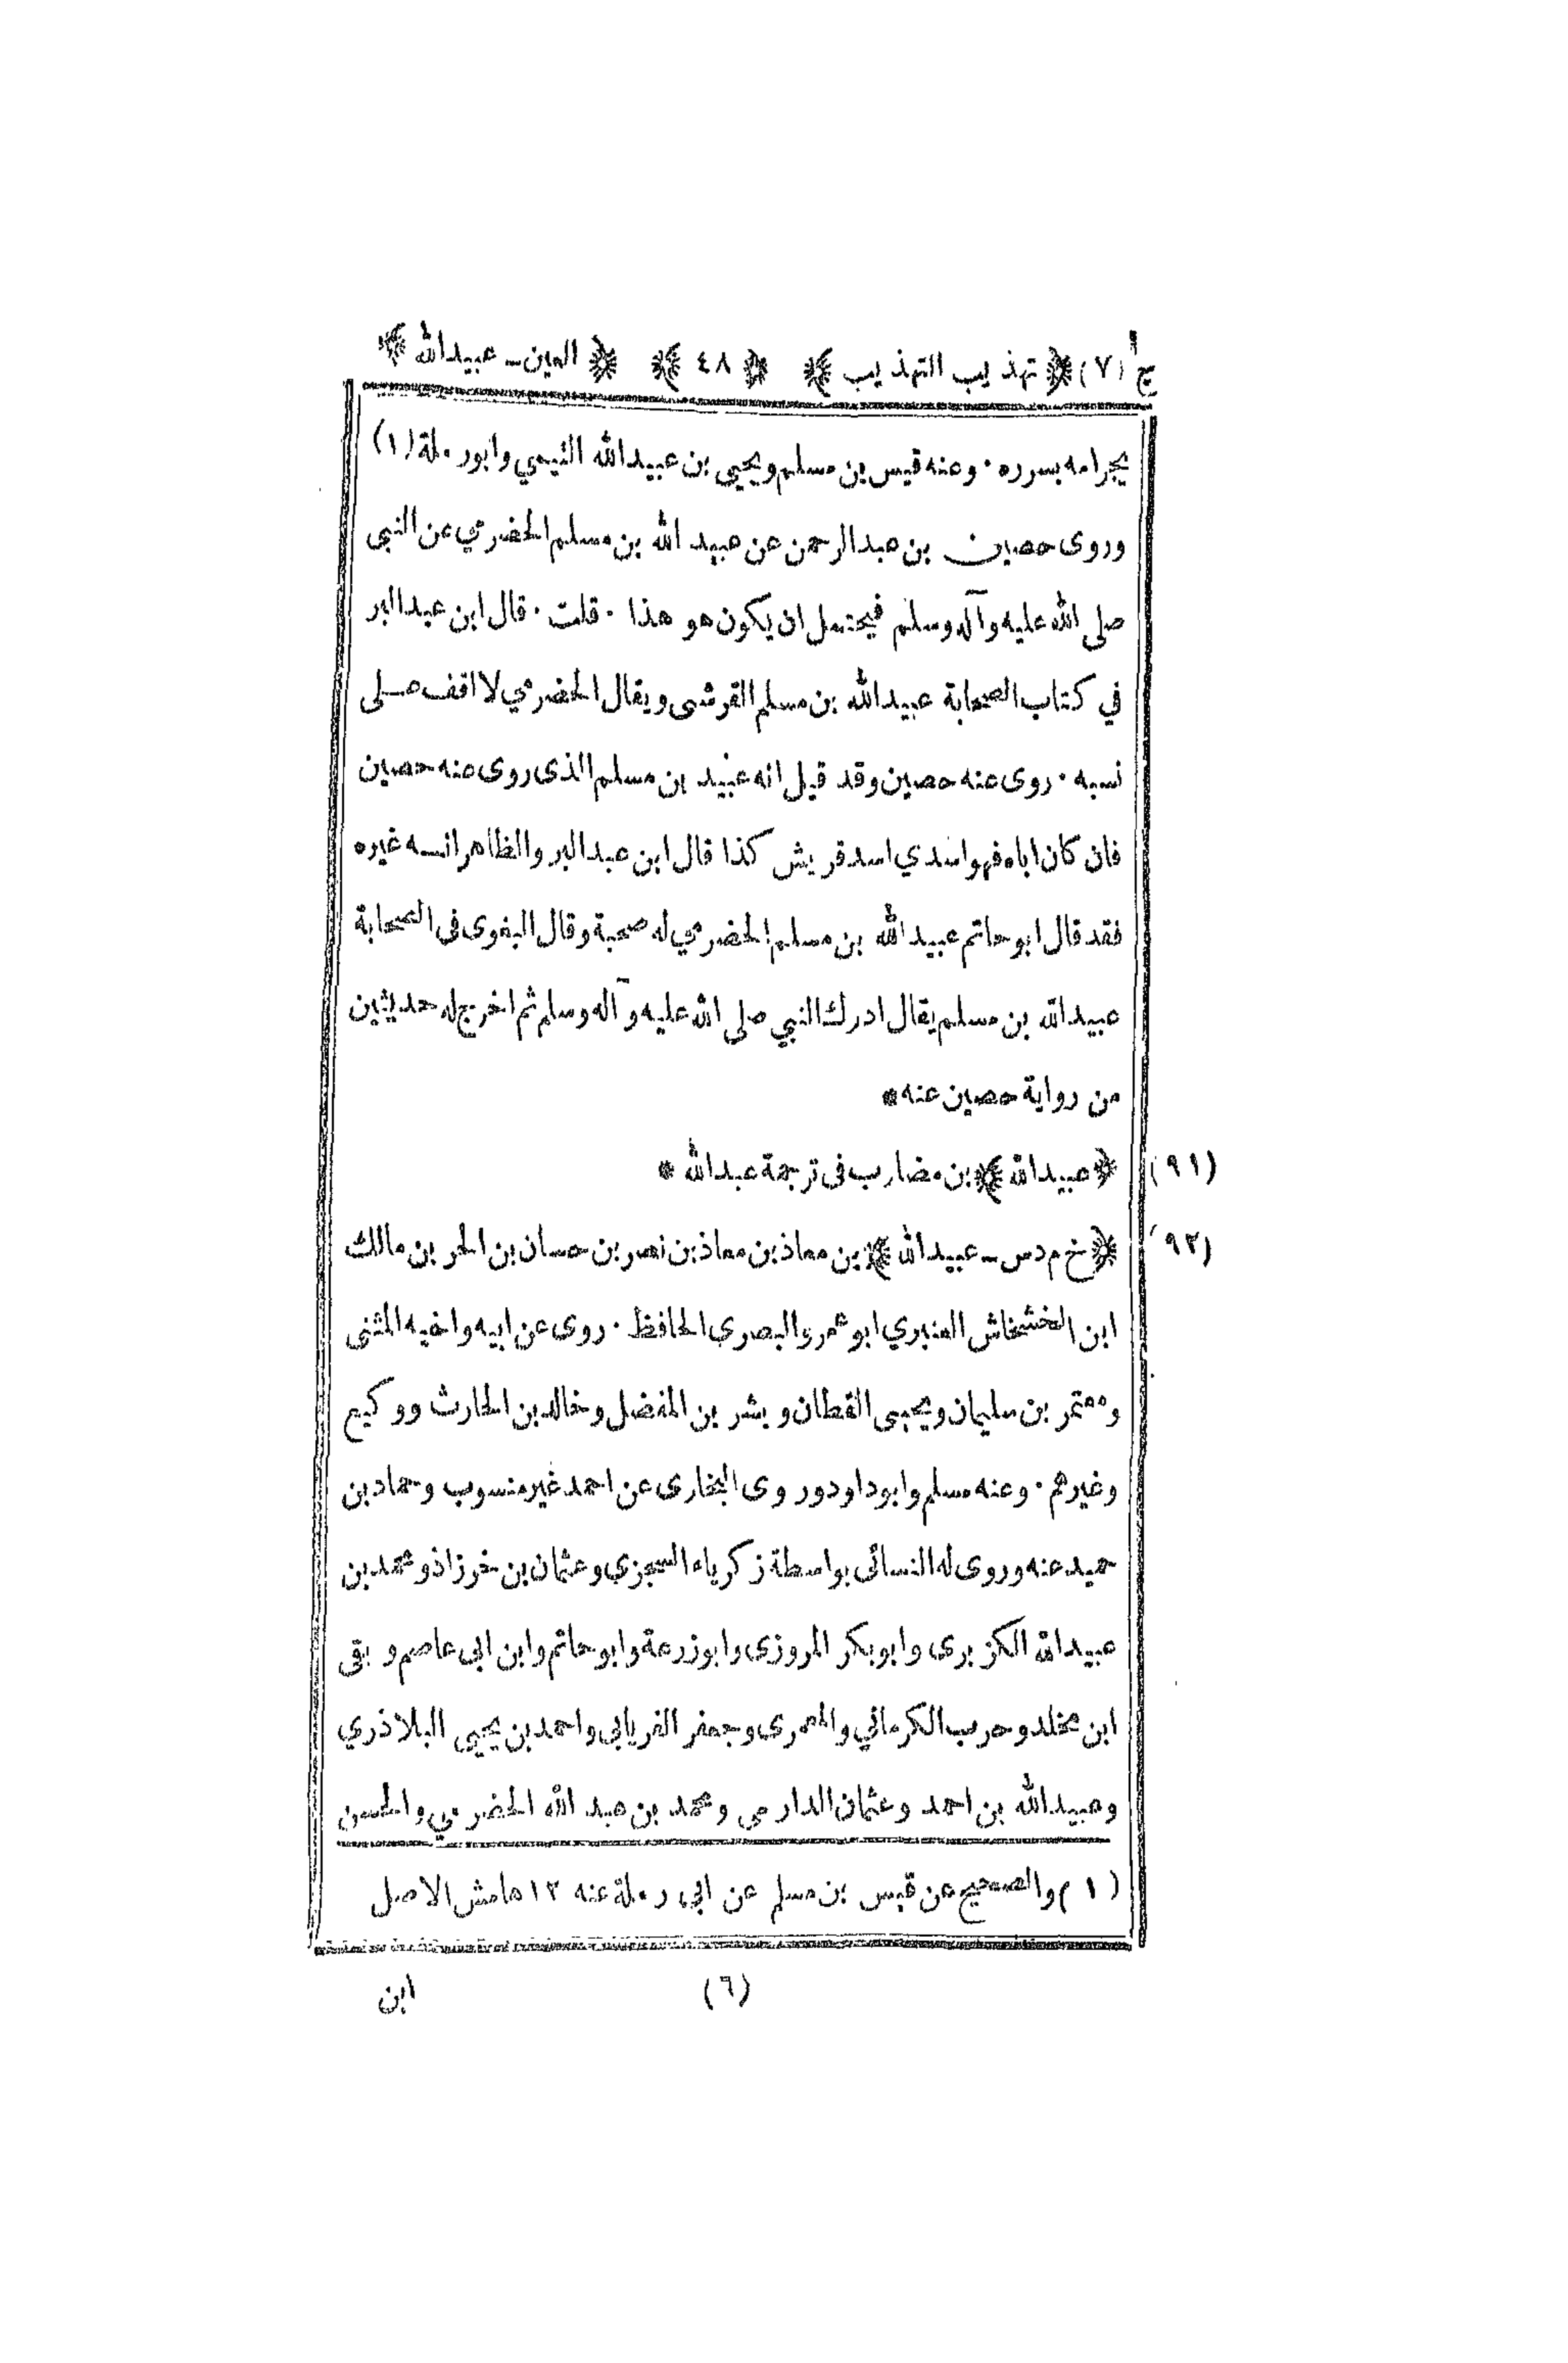 ج (٧) ﴿ تهذيب التهذيب ﴾ ﴿ ٤٨ ﴾ ﴿ العين ـ عبيدالله ﴾
يجر امه بسرره ٠ وعنه قيس بن مسلم ويحيى بن عبيدالله التيمي وابو رملة (١)
وروى حصين بن عبدالرحمن عن عبيد الله بن مسلم الحضرمي عن النبي
صلى الله عليه وآله وسلم فيحتمل ان يكون هو هذا ٠ قلت ٠ قال ابن عبدالبر
في كتاب الصحابة عبيدالله بن مسلم القرشى ويقال الحضرمي لا اقف على
نسبه ٠ روى عنه حصين وقد قيل انه عبيد بن مسلم الذى روى عنه حصين
فان كان اياه فهو اسدي اسد قريش كذا قال ابن عبد البر والظاهر انه غيره
فقد قال ابو حاتم عبيد الله بن مسلم الحضرمي له صحبة وقال البغوى فى الصحابة
عبيدالله بن مسلم يقال ادرك النبي صلى الله عليه وآله وسلم ثم اخرج له حديثين
من رواية حصين عنه *
(٩١) ﴿ عبيدالله ﴾ بن مضارب فى ترجمة عبدالله *
(٩٢) ﴿ خ م د س ـ عبيدالله ﴾ بن معاذ بن معاذ بن نصر بن حسان بن الحر بن مالك
ابن الخشخاش العنبري ابو عمرو البصري الحافظ ٠ روى عن ابيه واخيه المثنى
ومعتمر بن سليمان ويحيى القطان وبشر بن المفضل وخالد بن الحارث ووكيع
وغيرهم ٠ وعنه مسلم وابو داود وروى البخارى عن احمد غير منسوب وحماد بن
حميد عنه وروى له النسائى بواسطة زكرياء السجزي وعثمان بن خرزاذ ومحمد بن
عبيدالله الكزبرى وابو بكر المروزى وابوزرعة وابو حاتم وابن ابى عاصم وبقى
ابن مخلد وحرب الكرماني والمعمرى وجعفر الفريابى واحمد بن يحيى البلاذري
وعبيدالله بن احمد وعثمان الدارمى ومحمد بن عبد الله الحضرمي والحسن
(١) والصحيح عن قيس بن مسلم عن ابى رملة عنه ١٢ هامش الاصل
(٦) ابن